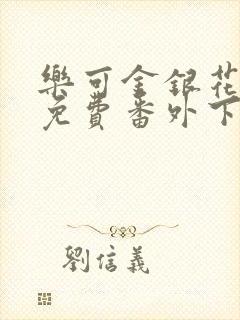 樂可金銀花
免費番外下
劉信義